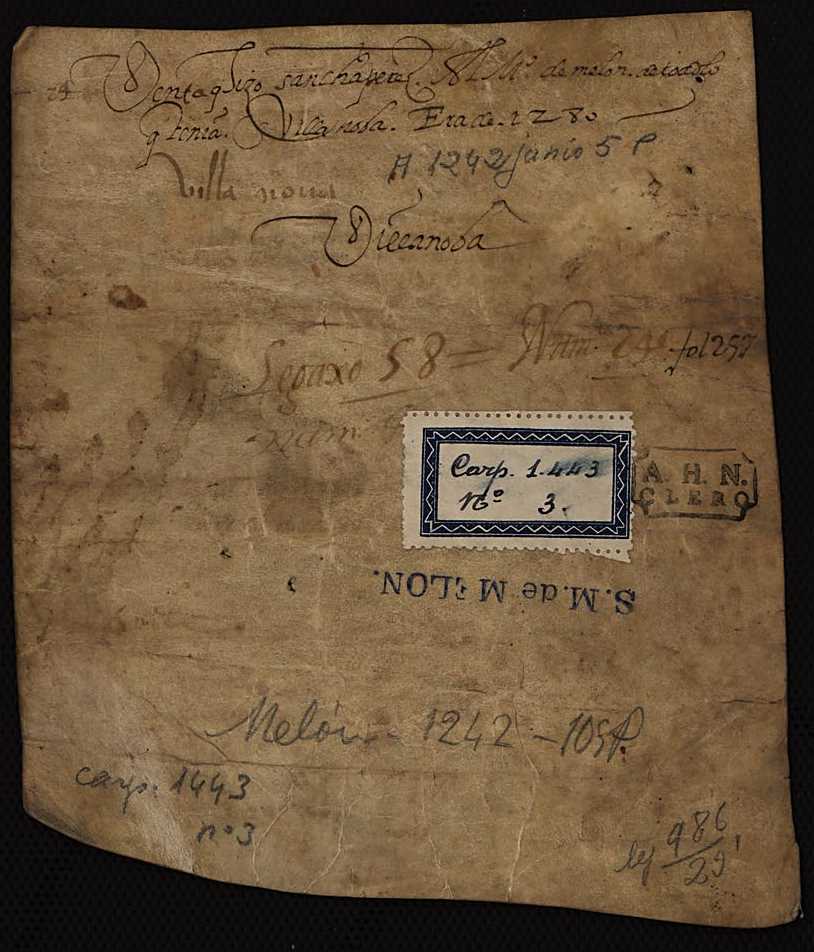 Venta q hizo sancha perez. Al Mº. de melon. de todo lo
q tenia. Villanoba. Era de. 1280
A 1242 junio 5 P
Villa nova
Villanoba
Legaxo 58 = Num. fol 257
Num.
Carp. 1.443
nº 3.
A. H. N.
CLERO
S.M. de MELON.
Melón - 1242 -
carp. 1443
nº 3
leg 986
29